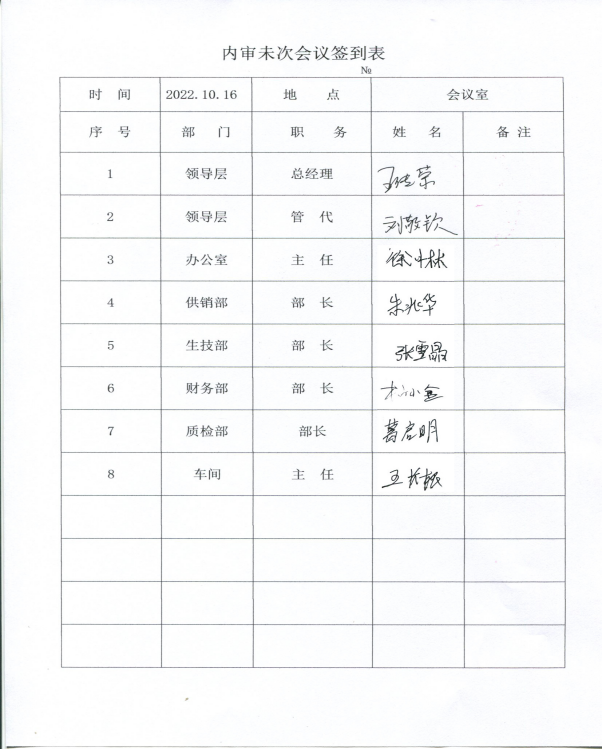 内审未次会议签到表
№
时 间 2022.10.16 地 点 会议室
序 号 部 门 职 务 姓 名 备 注
1 领导层 总经理
2 领导层 管 代 刘敬钦
3 办公室 主 任
4 供销部 部 长 朱兆华
5 生技部 部 长 张雪晶
6 财务部 部 长
7 质检部 部长 葛启明
8 车间 主 任